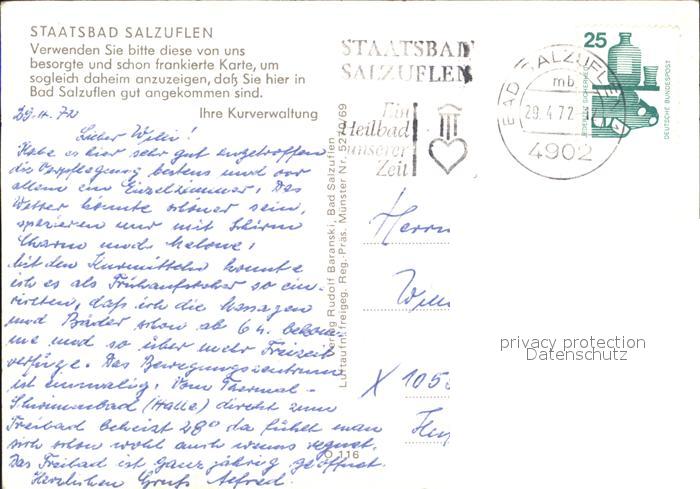 STAATSBAD SALZUFLEN
Verwenden Sie bitte diese von uns
besorgte und schon frankierte Karte, um
sogleich daheim anzuzeigen, daß Sie hier in
Bad Salzuflen gut angekommen sind.
Ihre Kurverwaltung
29.4.72
Lieber Willi!
Habe es hier sehr gut angetroffen
die Verpflegung bestens und vor
allem ein Einzelzimmer! Das
Wetter könnte schöner sein,
spazieren nur mit Schirm
Charm und Melone!
Mit den Kurmitteln konnte
ich es als Frühaufsteher so ein-
richten, daß ich die Massagen
und Bäder schon ab 6 h. bekom-
me und so über mehr Freizeit
verfüge. Das Bewegungszentrum
ist einmalig! Vom Thermal-
Schwimmbad (Halle) direkt zum
Freibad beheizt 28° da fühlt man
sich schon wohl auch wenns regnet.
Das Freibad ist ganzjährig geöffnet.
Herzlichen Gruß Alfred.
Verlag Rudolf Baranski, Bad Salzuflen
Luftaufn. freigeg. Reg.-Präs. Münster Nr. 5279/69
O 116
STAATSBAD
SALZUFLEN
Ein
Heilbad
unserer
Zeit
BAD SALZUFLEN 1
mb
29.4.72
4902
25
JEDERZEIT SICHERHEIT
DEUTSCHE BUNDESPOST
Herrn
Will
X 105
privacy protection
Datenschutz